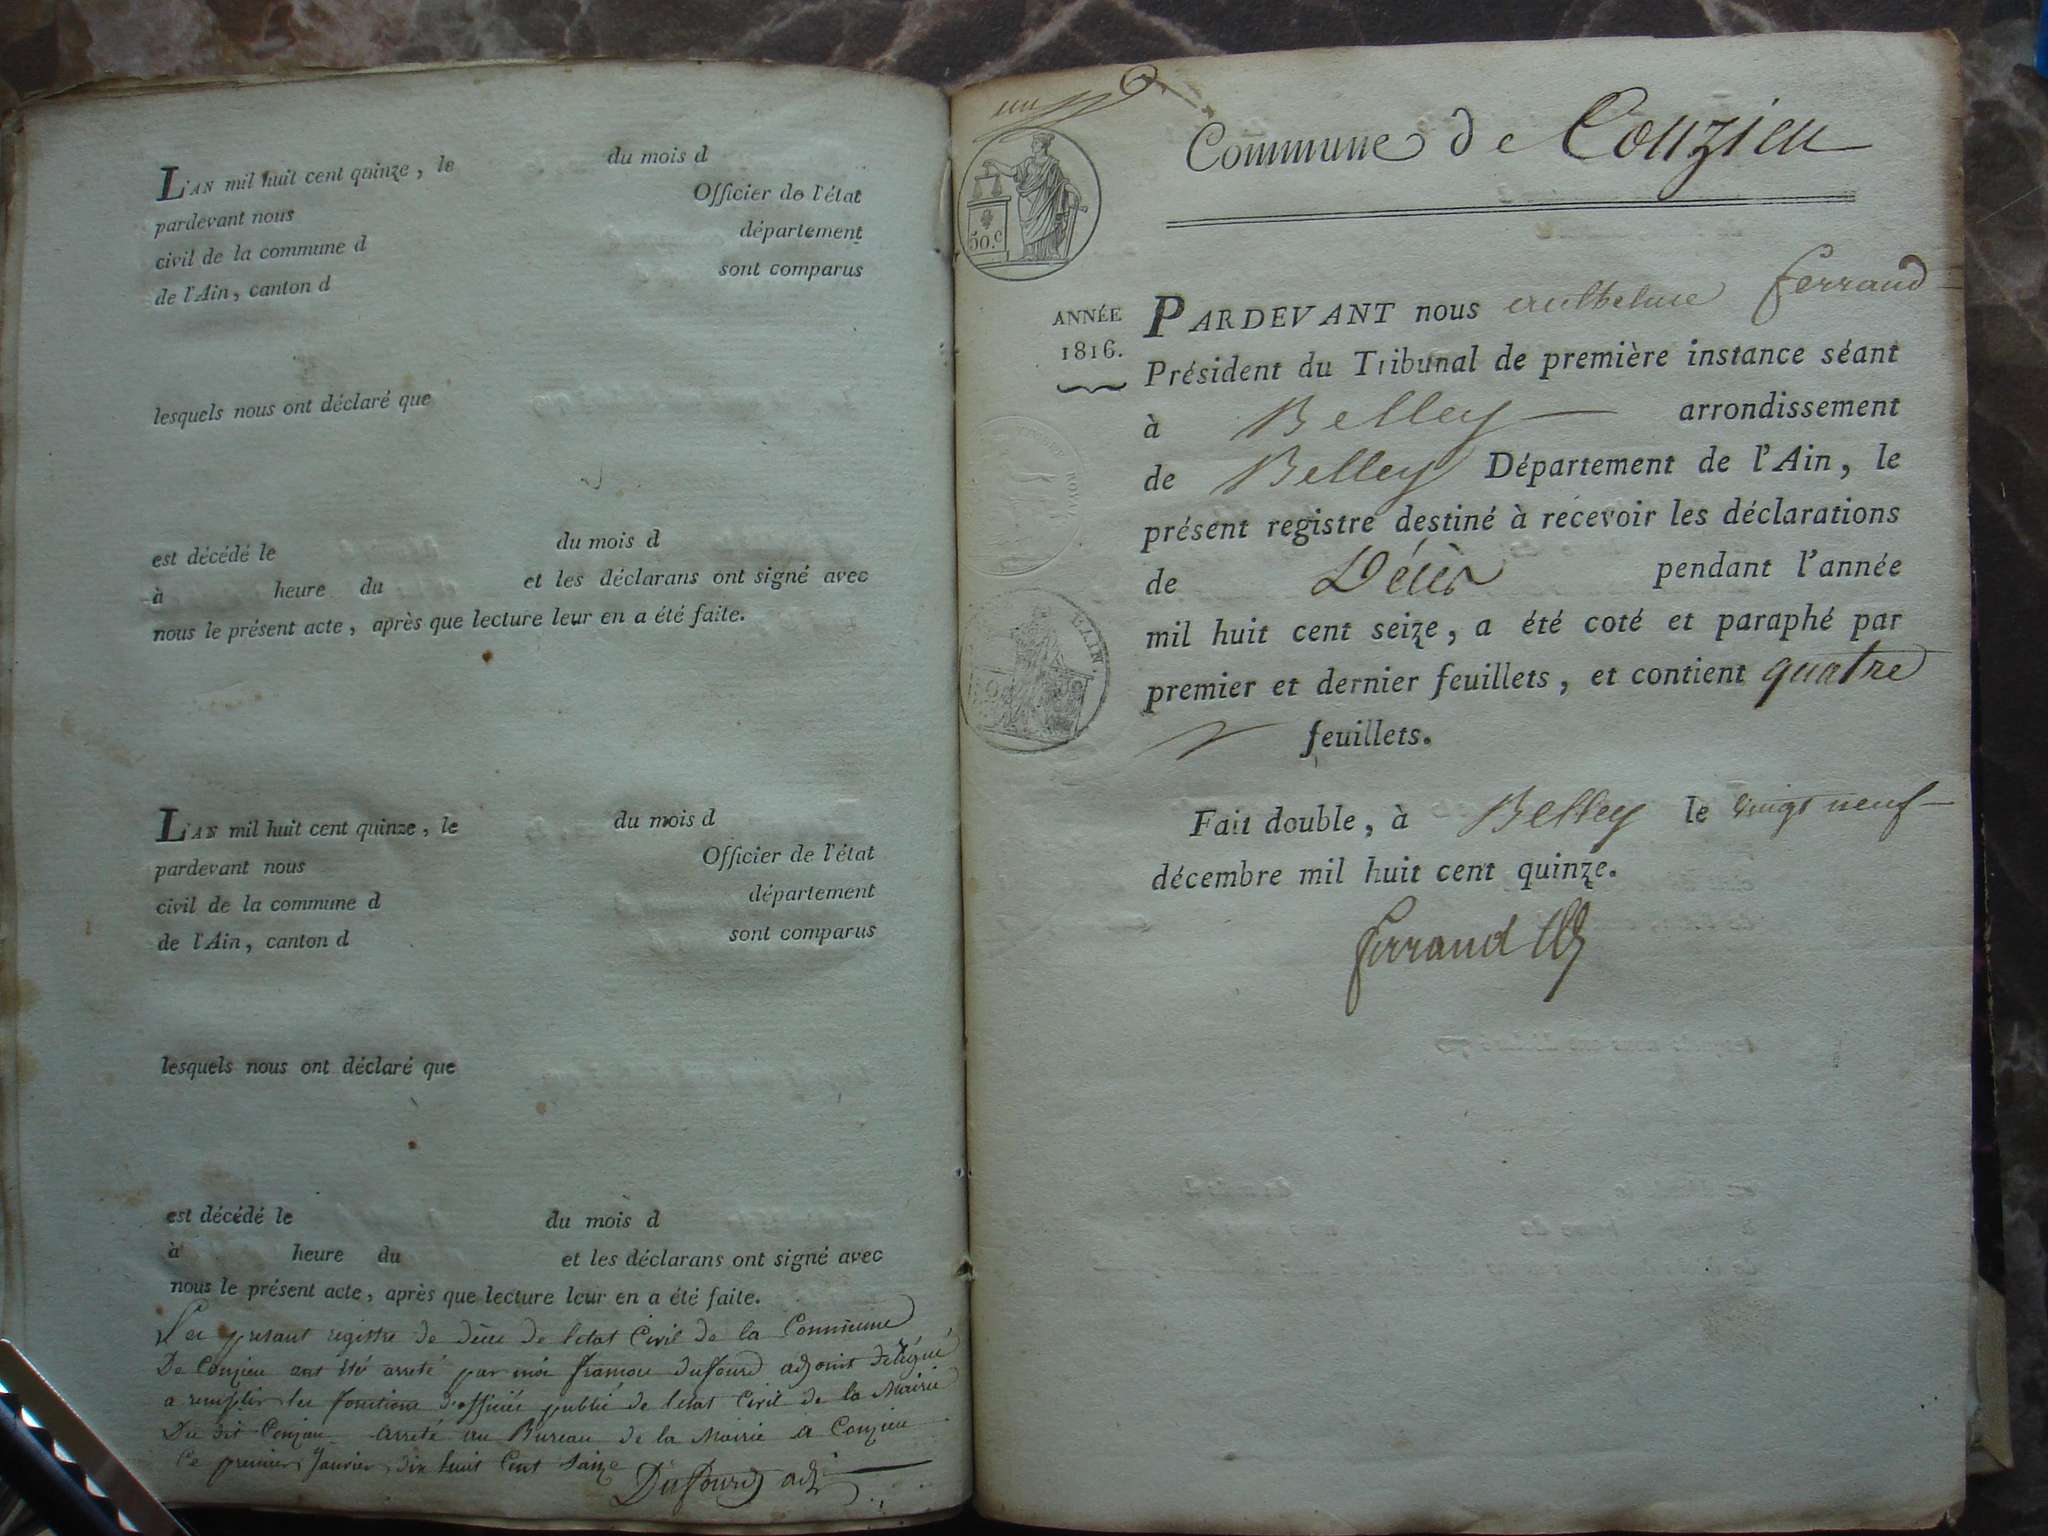 L'AN mil huit cent quinze, le du mois d
pardevant nous Officier de l'état
civil de la commune d département
de l'Ain, canton d sont comparus
lesquels nous ont déclaré que
est décédé le du mois d
à heure du et les déclarans ont signé avec
nous le présent acte, après que lecture leur en a été faite.
L'AN mil huit cent quinze, le du mois d
pardevant nous Officier de l'état
civil de la commune d département
de l'Ain, canton d sont comparus
lesquels nous ont déclaré que
est décédé le du mois d
à heure du et les déclarans ont signé avec
nous le présent acte, après que lecture leur en a été faite.
registre de de letat Civil de la Commune
De Conzieu été arreté par moi dufourd adjoint délégué
a remplir les fonctions publié de letat Civil de la Mairie
Du dit Conzieu arreté au Bureau de la Mairie a Conzieu
Ce premier Janvier dix huit Cent
Dufourd adj
un
Commune de Conzieu
50.c
ANNÉE
1816.
PARDEVANT nous anthelme Ferrand
Président du Tribunal de première instance séant
à Belley arrondissement
de Belley Département de l'Ain, le
présent registre destiné à recevoir les déclarations
de Décès pendant l'année
mil huit cent seize, a été coté et paraphé par
premier et dernier feuillets, et contient quatre
feuillets.
Fait double, à Belley le vingt neuf
décembre mil huit cent quinze.
Ferrand